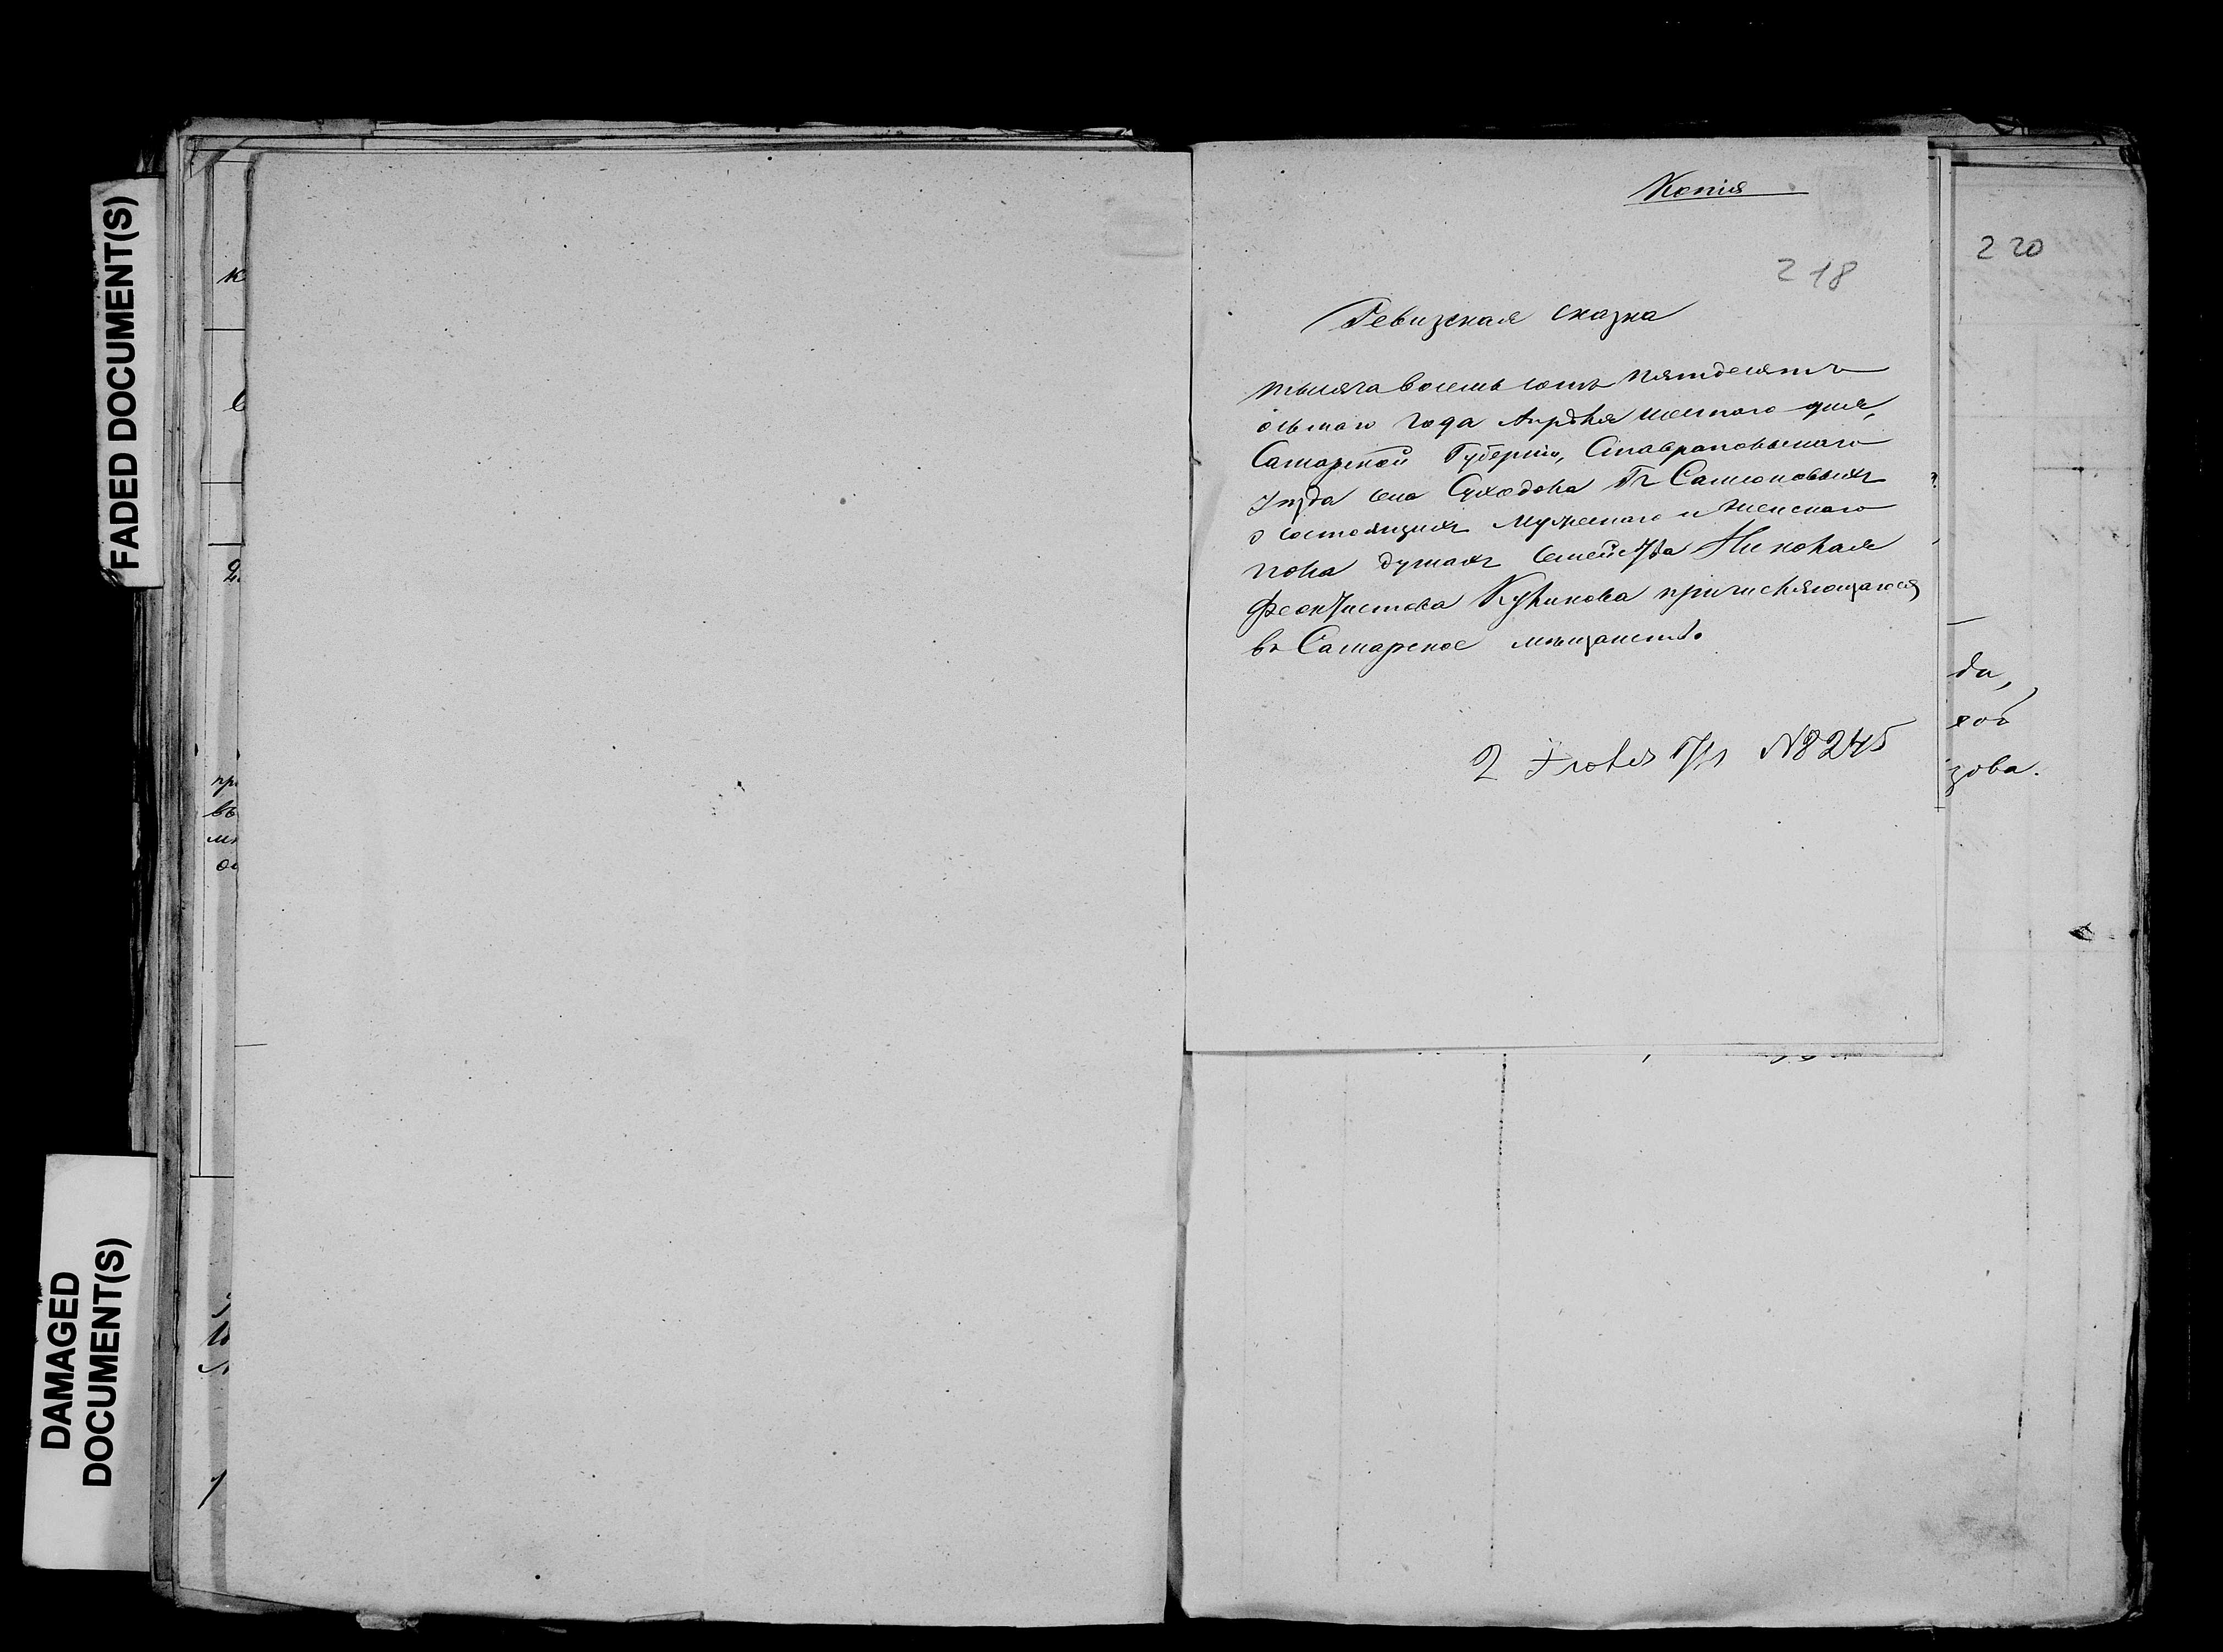 FADED DOCUMENT(S)
DAMAGED
DOCUMENT(S)
Копія
218
220
Ревизская сказка
тысяча восемь сотъ пятдесятъ
осьмаго года Апрѣля шестаго дня,
Самарской Губерніи, Ставропольскаго
Уѣзда села Суходола Гг Самсоновыхъ
о состоящихъ мужескаго и женскаго
пола душахъ семейства Николая
Феоктистова Куликова причисляющагося
въ Самарское мѣщанство.
2 Іюля № 8245
да,
зова.